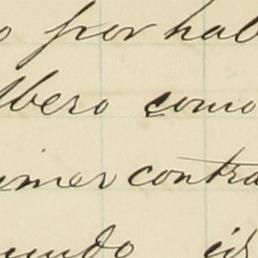 o por hab
lbero como
imer contra
undo